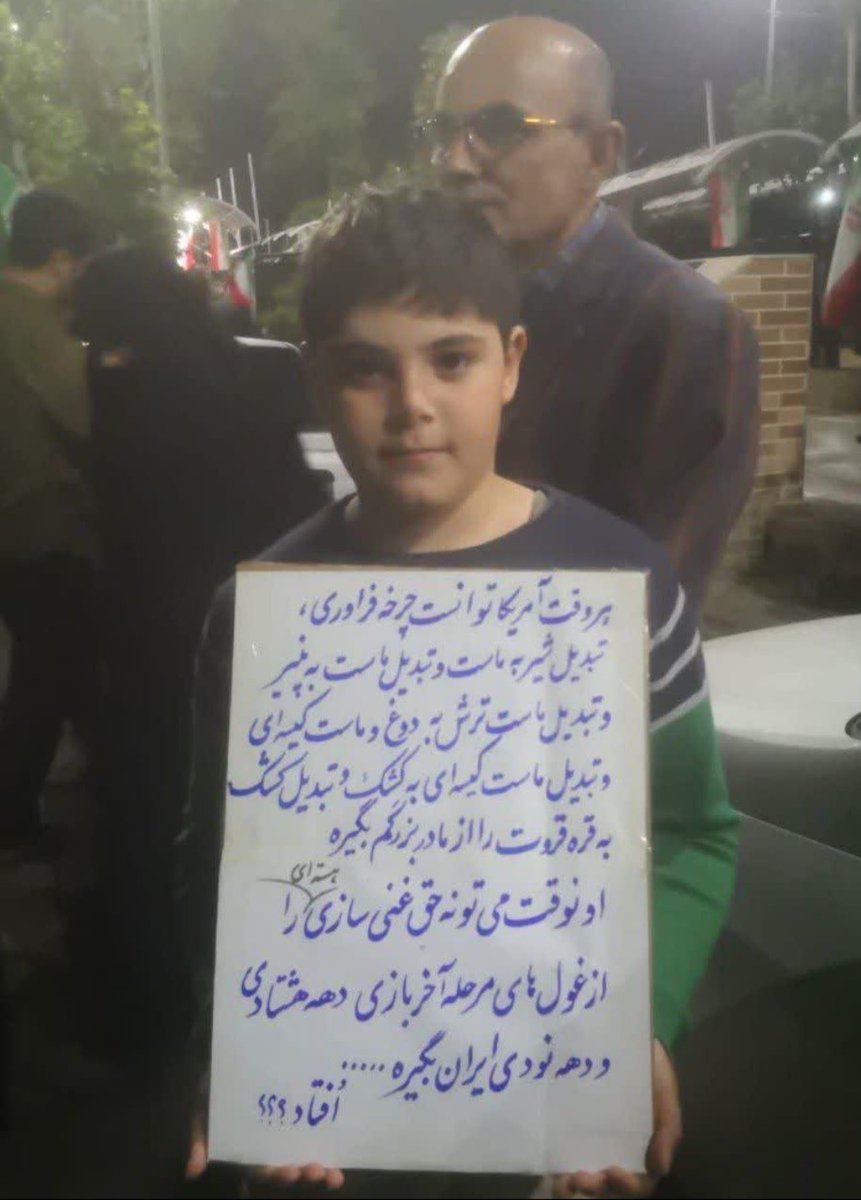 هر وقت آمریکا توانست چرخه فراوری،
تبدیل شیر به ماست و تبدیل ماست به پنیر
و تبدیل ماست ترش به دوغ و ماست کیسه ای
و تبدیل ماست کیسه ای به کشک و تبدیل کشک
به قره قروت را از مادربزرگم بگیره
هسته ای
اونوقت می تونه حق غنی سازی را
از غول های مرحله آخر بازی دهه هشتادی
و دهه نودی ایران بگیره .....
اُفتاد ؟؟؟